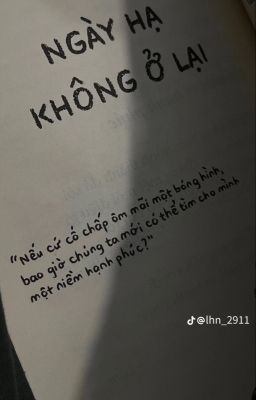 NGÀY HẠ
KHÔNG Ở LẠI
"Nếu cứ cố chấp ôm mãi một bóng hình,
bao giờ chúng ta mới có thể tìm cho mình
một niềm hạnh phúc?"
@lhn_2911